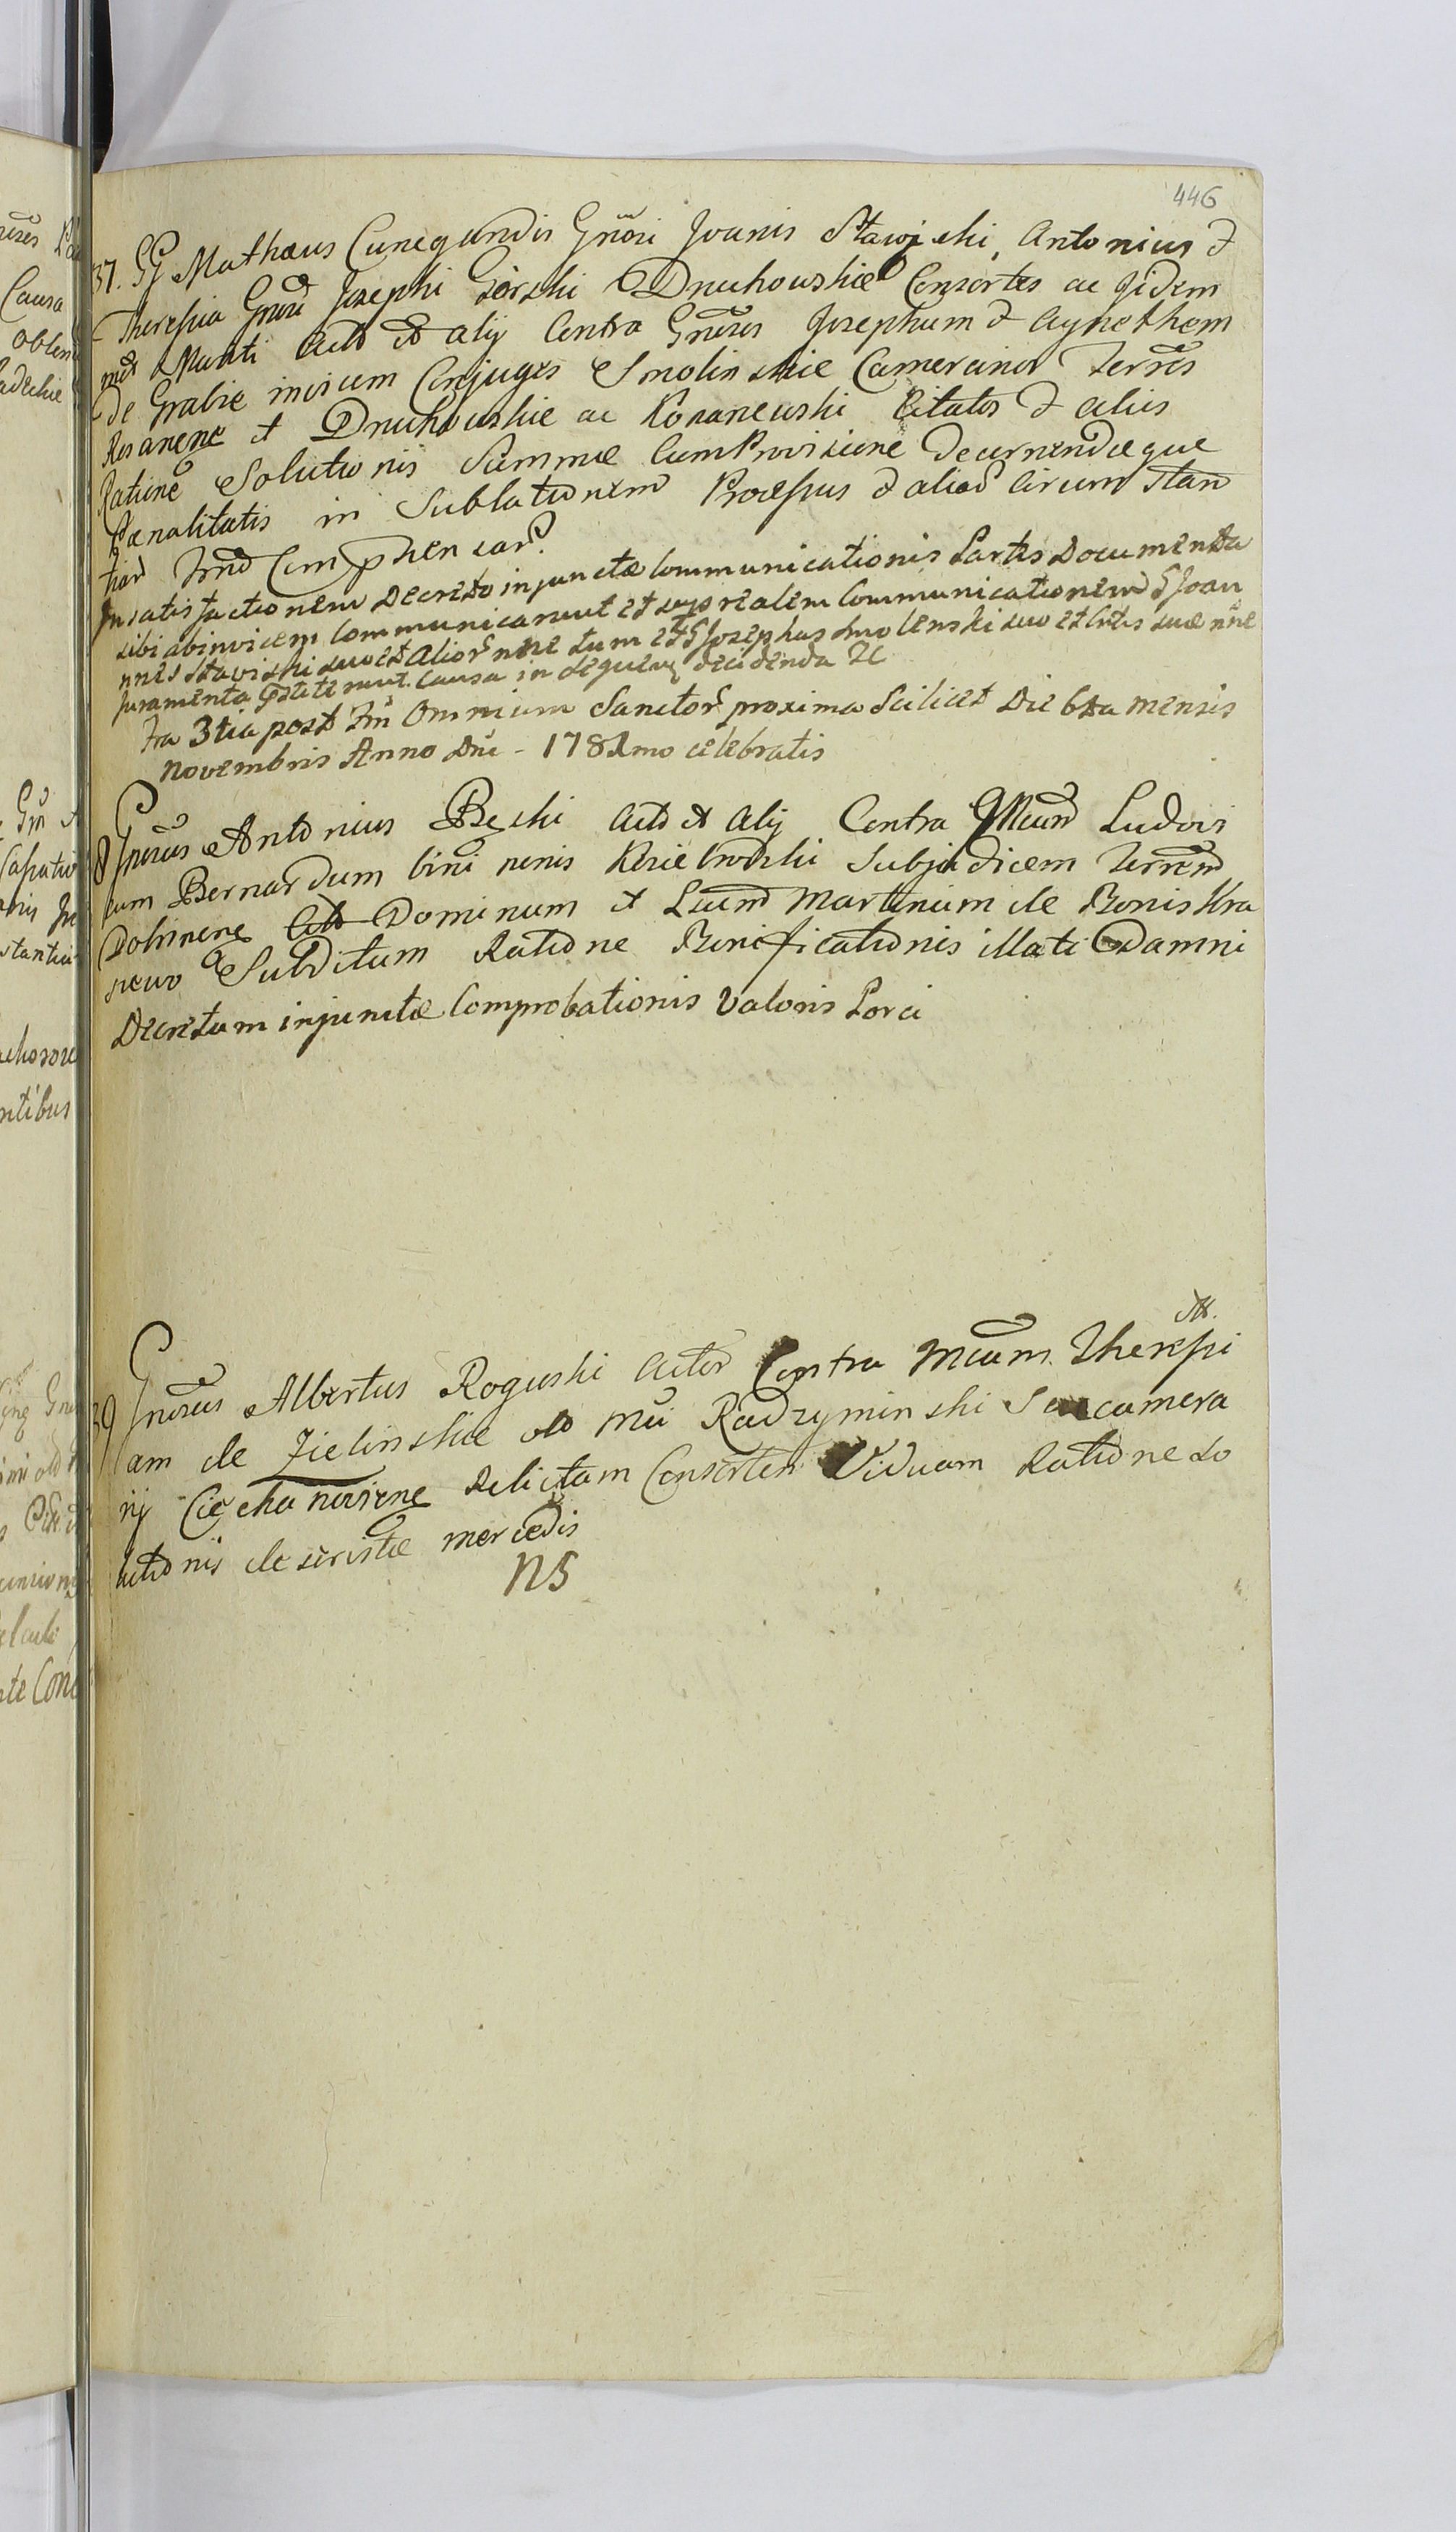 446
37. GG Mathaeus Cunegundis Gnōsi Joanis Stawiski, Antonius &
Theressia Gnōsi Josephi Górski Druchowskie Consortes ac Jidem
met Mariti Act et alij Contra Gnōsos Josephum & Agnethem
De Grabie invicem Conjuges Smolinskie Camerarios Terrēs
Rosanens et Druchowskie ac Roxanewski Citatos & alius
Ratione Solutionis Summae Cum Provisione Decernendaeque
Paenalitatis in Sublationem Processus & alias Circumstan
tias Trnd Comphensar.
In satisfactionem Decreto injunctae Communicationis Partes Documenta
sibi abinvicem Communicarunt et sup realem Communicationem G Joan
nnes Stawiski suo et Alior nne tum et G Josephus Smolenski suo et Cntis suae nne
Juramenta pstiterunt. Causa in sequen decidenda &c
Fra 3tia post Fm Omnium Sanctor proxima Scilicet Die 6ta mensis
Novembris Anno Dni - 1781mo celebratis
8 Gnosus Antonius Beski Act et Alij Contra GMcum Ludovi
cum Bernardum bini nonis Kosiebrodzki Subjudicem Terrem
Dobrinens Dominum et Laum Martinum de Bonis Kra
jewo Subditum Ratione Bonificationis illati Damni
Decretum injunctae Comprobationis Valoris Porci
39 Gnosus Albertus Roguski Actor Contra Mcam Theressi
am de Zielinskie olo Mci Radzyminski Succamera
rij Ciechanoviens Relictam Consortem Viduam Ratione so
lutionis deservitae mercedis
NS